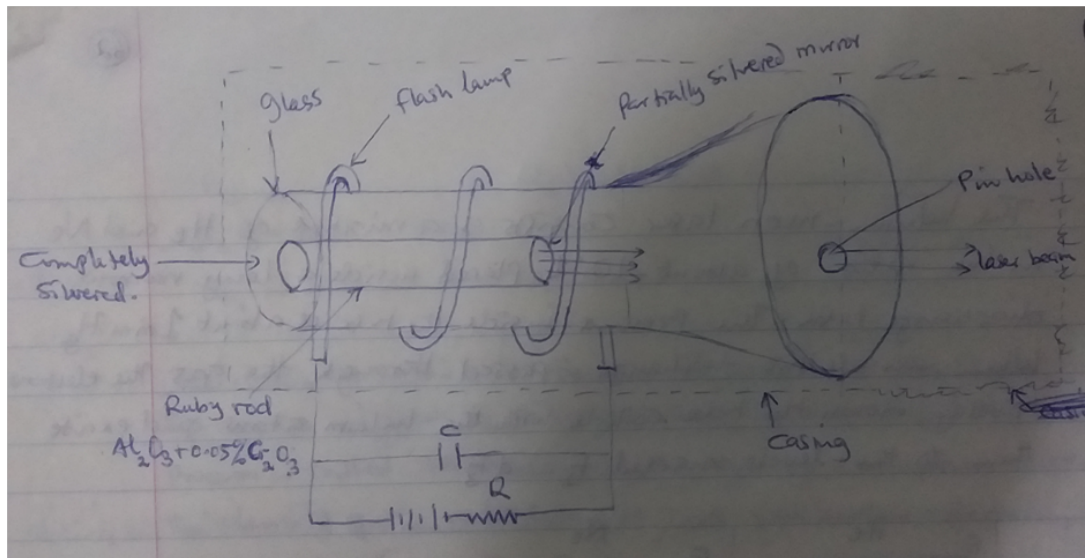 glass
flash lamp
Partially silvered mirror
Pin hole
Completely
silvered.
laser beam
Ruby rod
Al₂O₃+0.05%Cr₂O₃
C
R
Casing